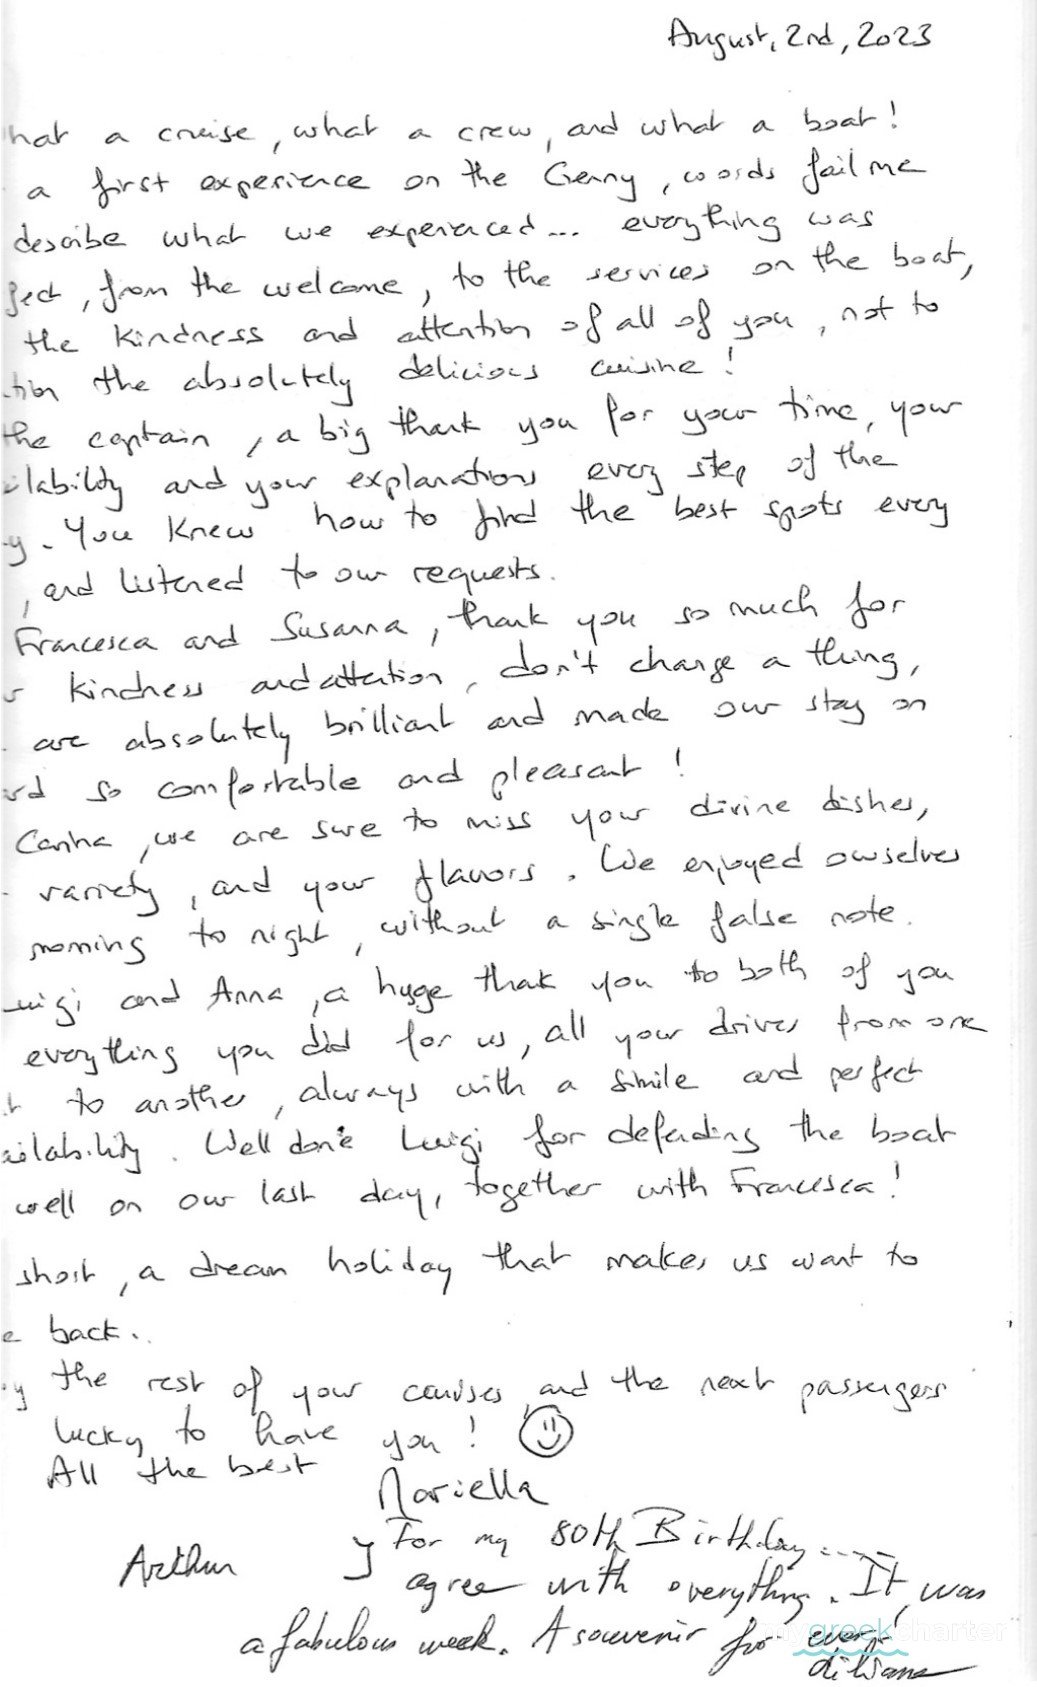 August, 2nd, 2023
hat a cruise, what a crew, and what a boat!
a first experience on the Genny, words fail me
describe what we experienced... everything was
fect, from the welcome, to the services on the boat,
the kindness and attention of all of you, not to
tion the absolutely delicious cuisine!
the captain, a big thank you for your time, your
ilability and your explanations every step of the
y. You knew how to find the best spots every
, and listened to our requests.
Francesca and Susanna, thank you so much for
r kindness and attention, don't change a thing,
are absolutely brilliant and made our stay on
rd so comfortable and pleasant!
Carina, we are sure to miss your divine dishes,
variety, and your flavors. We enjoyed ourselves
morning to night, without a single false note.
uigi and Anna, a huge thank you to both of you
everything you did for us, all your drives from one
t to another, always with a smile and perfect
ailability. Well done Luigi for defending the boat
well on our last day, together with Francesca!
short, a dream holiday that makes us want to
e back..
y the rest of your cruises and the next passengers
lucky to have you!
All the best
Mariella
Arthur
For my 80th Birthday.....
agree with everything. It was
a fabulous week. A souvenir for ever!
Liliane
mygreekcharter